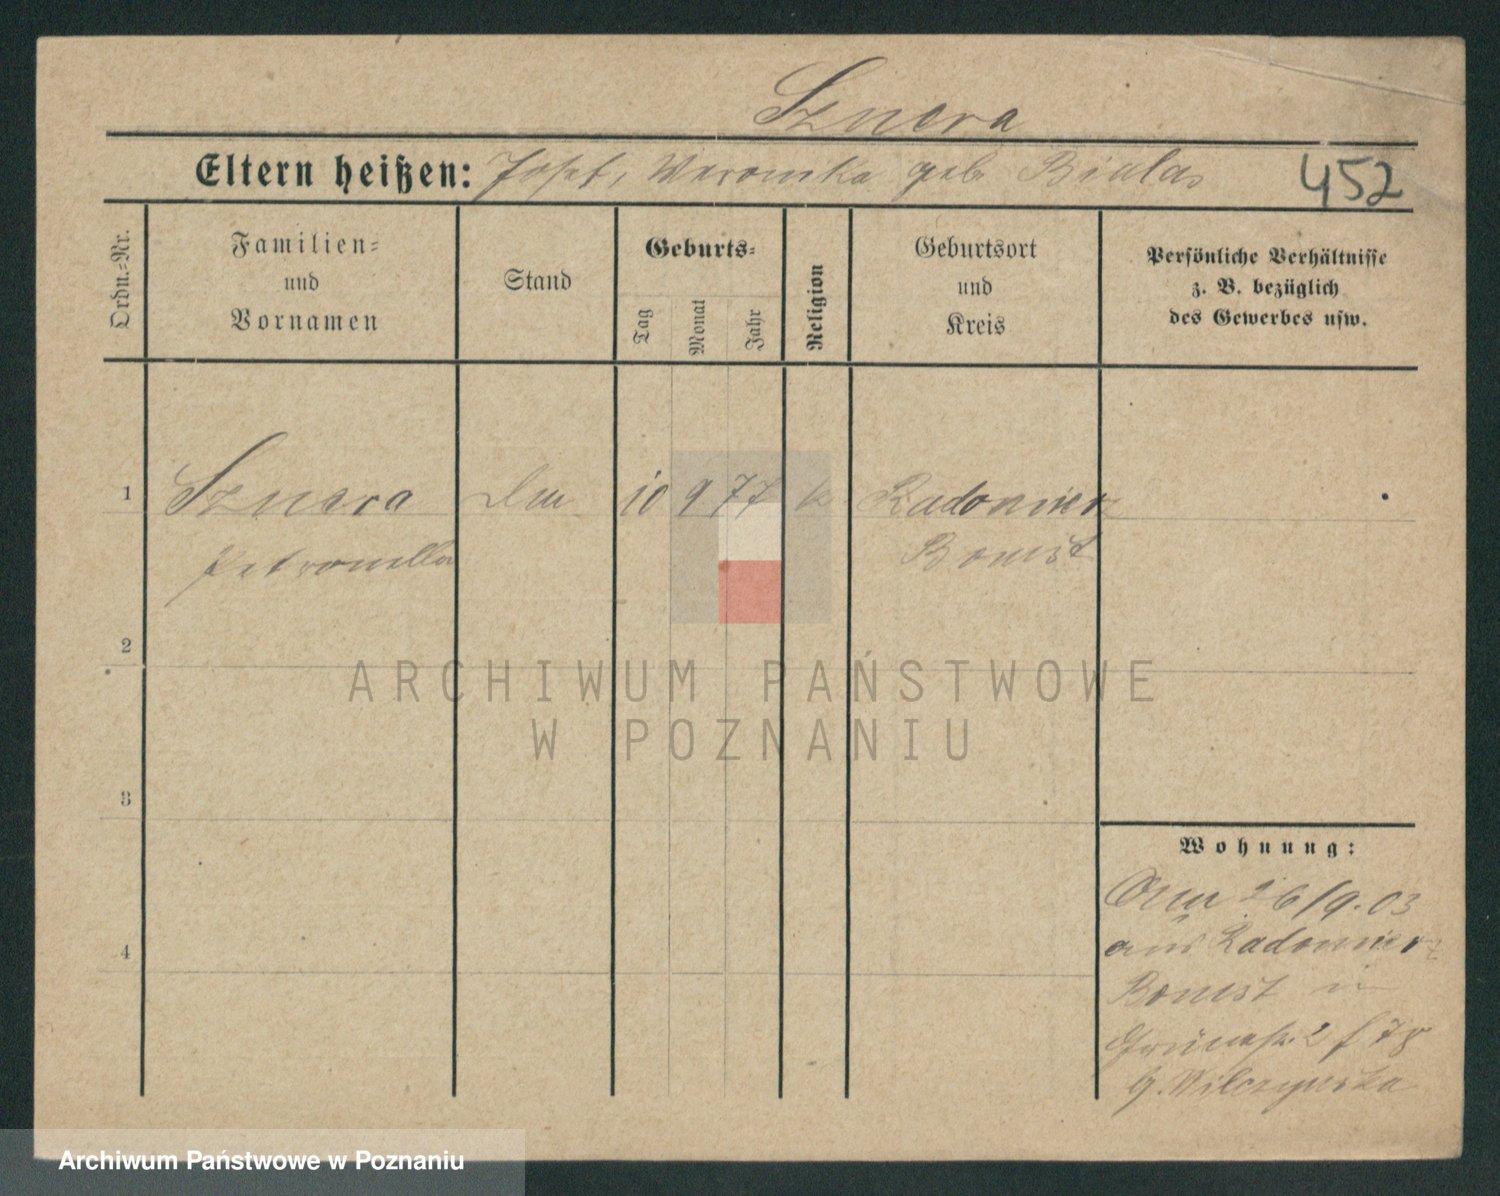 Sznera
Eltern heißen: Josef, Weronika geb Bialas
452
Ordn.-Nr.
Familien-
und
Vornamen
Stand
Geburts-
Tag
Monat
Jahr
Religion
Geburtsort
und
Kreis
Persönliche Verhältnisse
z. B. bezüglich
des Gewerbes usw.
1 Sznera 10 9 77 k Radomierz
Petronella Bomst
2
3
4
Wohnung:
26/9.03
aus Radomierz
Bomst in
Grünestr. 2 f 78
b. Wilczynska
ARCHIWUM PAŃSTWOWE
W POZNANIU
Archiwum Państwowe w Poznaniu